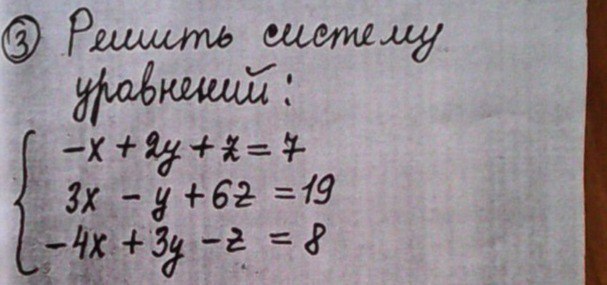 ③ Решить систему
уравнений:
-x + 2y + z = 7
3x - y + 6z = 19
-4x + 3y - z = 8